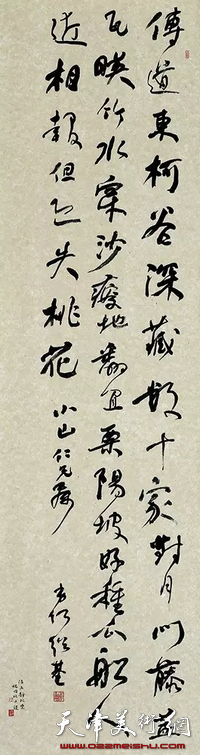 傳道東柯谷深藏數十家對月门藤蓋
瓦暎竹水穿沙瘦地翻宜粟陽坡好種瓜船人
近相報但恐失桃花
小山仁兄屬
天津美术网
www.022meishu.com